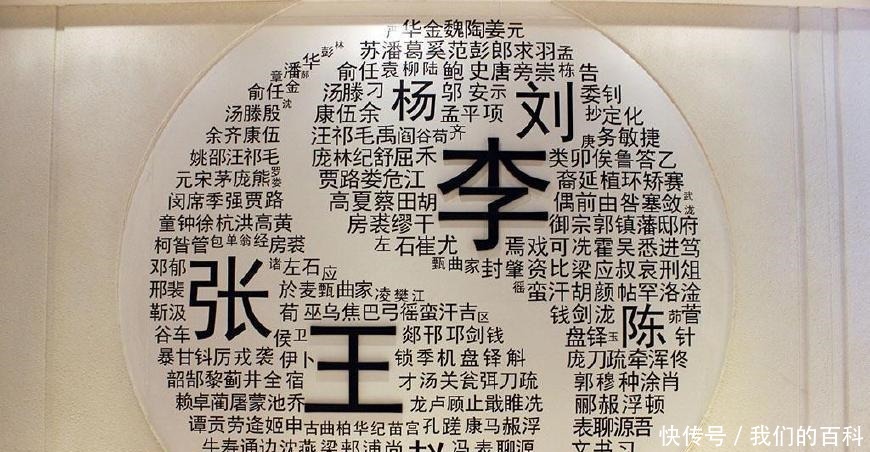 华金魏陶姜元
苏潘葛奚范彭郎求羽孟
章潘郝华彭林
俞任袁柳陆鲍史唐旁崇栋告
俞任金
汤滕刁杨邬安示刘委钊
汤滕殷沈
康伍余孟平项抄定化
余齐康伍
汪祁毛禹阎谷荀齐
庚务敏捷
姚邵汪祁毛
庞林纪舒屈禾李类卯俟鲁答乙
元宋茅庞熊罗娄
贾路娄危江裔延植环矫赛
闵席季强贾路
高夏蔡田胡偶前由昝塞敛武泷
童钟徐杭洪高黄
房裘缪干御宗郭镇藩邸府
柯昝管包单翁经房裘
左石崔尤焉戏可冼霍吴悉进笃
邓郁张诸左石应
甄曲家封肇资比梁应叔哀刑俎
邢裴於麦甄曲家凌樊江
徭蛮汗胡颜帖罕洛淦
靳汲荀巫乌焦巴弓徭蛮汗吉区
钱剑泷陈茆营
谷车侯卫王郯邗邛剑钱
盘铎玉针
暴甘钭厉戎袭伊卜
锁季机盘铎斛
庞刀疏牵浑佟
韶郜黎蓟井全宿
才汤关瓮弭刀疏
郭穆种涂肖
赖卓蔺屠蒙池乔
龙卢顾止戢睢冼
郦赧浮顿
谭贡劳逄姬申古曲柏华纪苗宫孔蹉康马赧浮
表聊源吾
牛寿通边沈燕梁郏浦尚赵冯表聊源
文书习
快传号/我们的百科